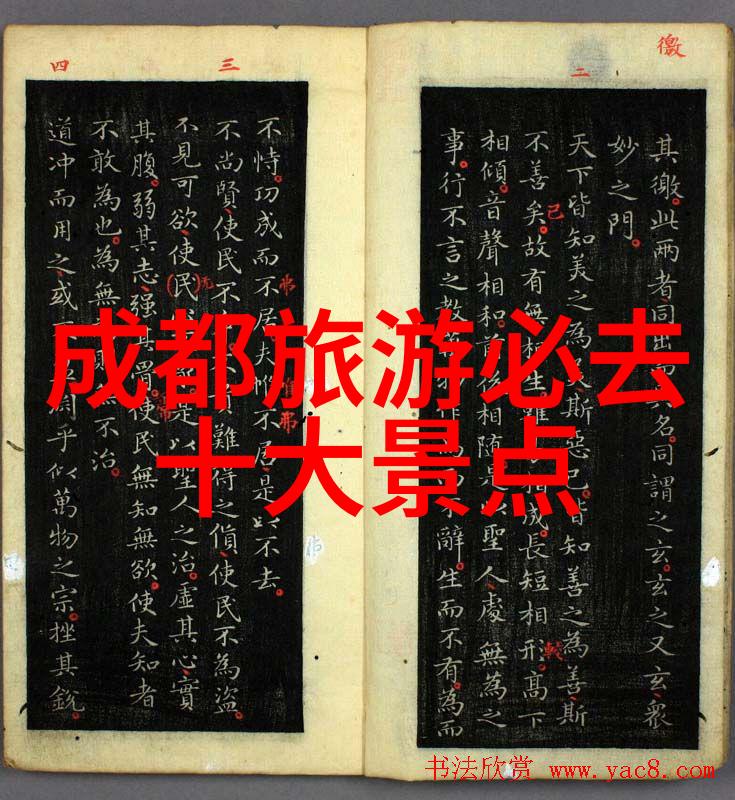 徼
二
其徼。此两者、同出名。同謂之玄。玄之又玄、衆
妙之門。
天下皆知美之為美斯惡已。皆知善之為善斯
不善矣。故有無相生。難相成。長短相形。高下
相傾。音聲相和。前後相随。是以聖人處無為之
事。行不言之教。作而不辭。生而不有。為而
三
四
不恃。功成而不居。夫惟不居。是以不去。
不尚賢、使民不貴難得之貨、使民不為盜。
不見可欲、使民是以聖人之治。虛其心、實
其腹。弱其志、强其骨。使民無知無欲。使夫知者
不敢為也。為無則不治。
道冲而用之、或乎似萬物之宗。挫其銳。
成都旅游必去
十大景点
书法欣赏 www.yac8.com